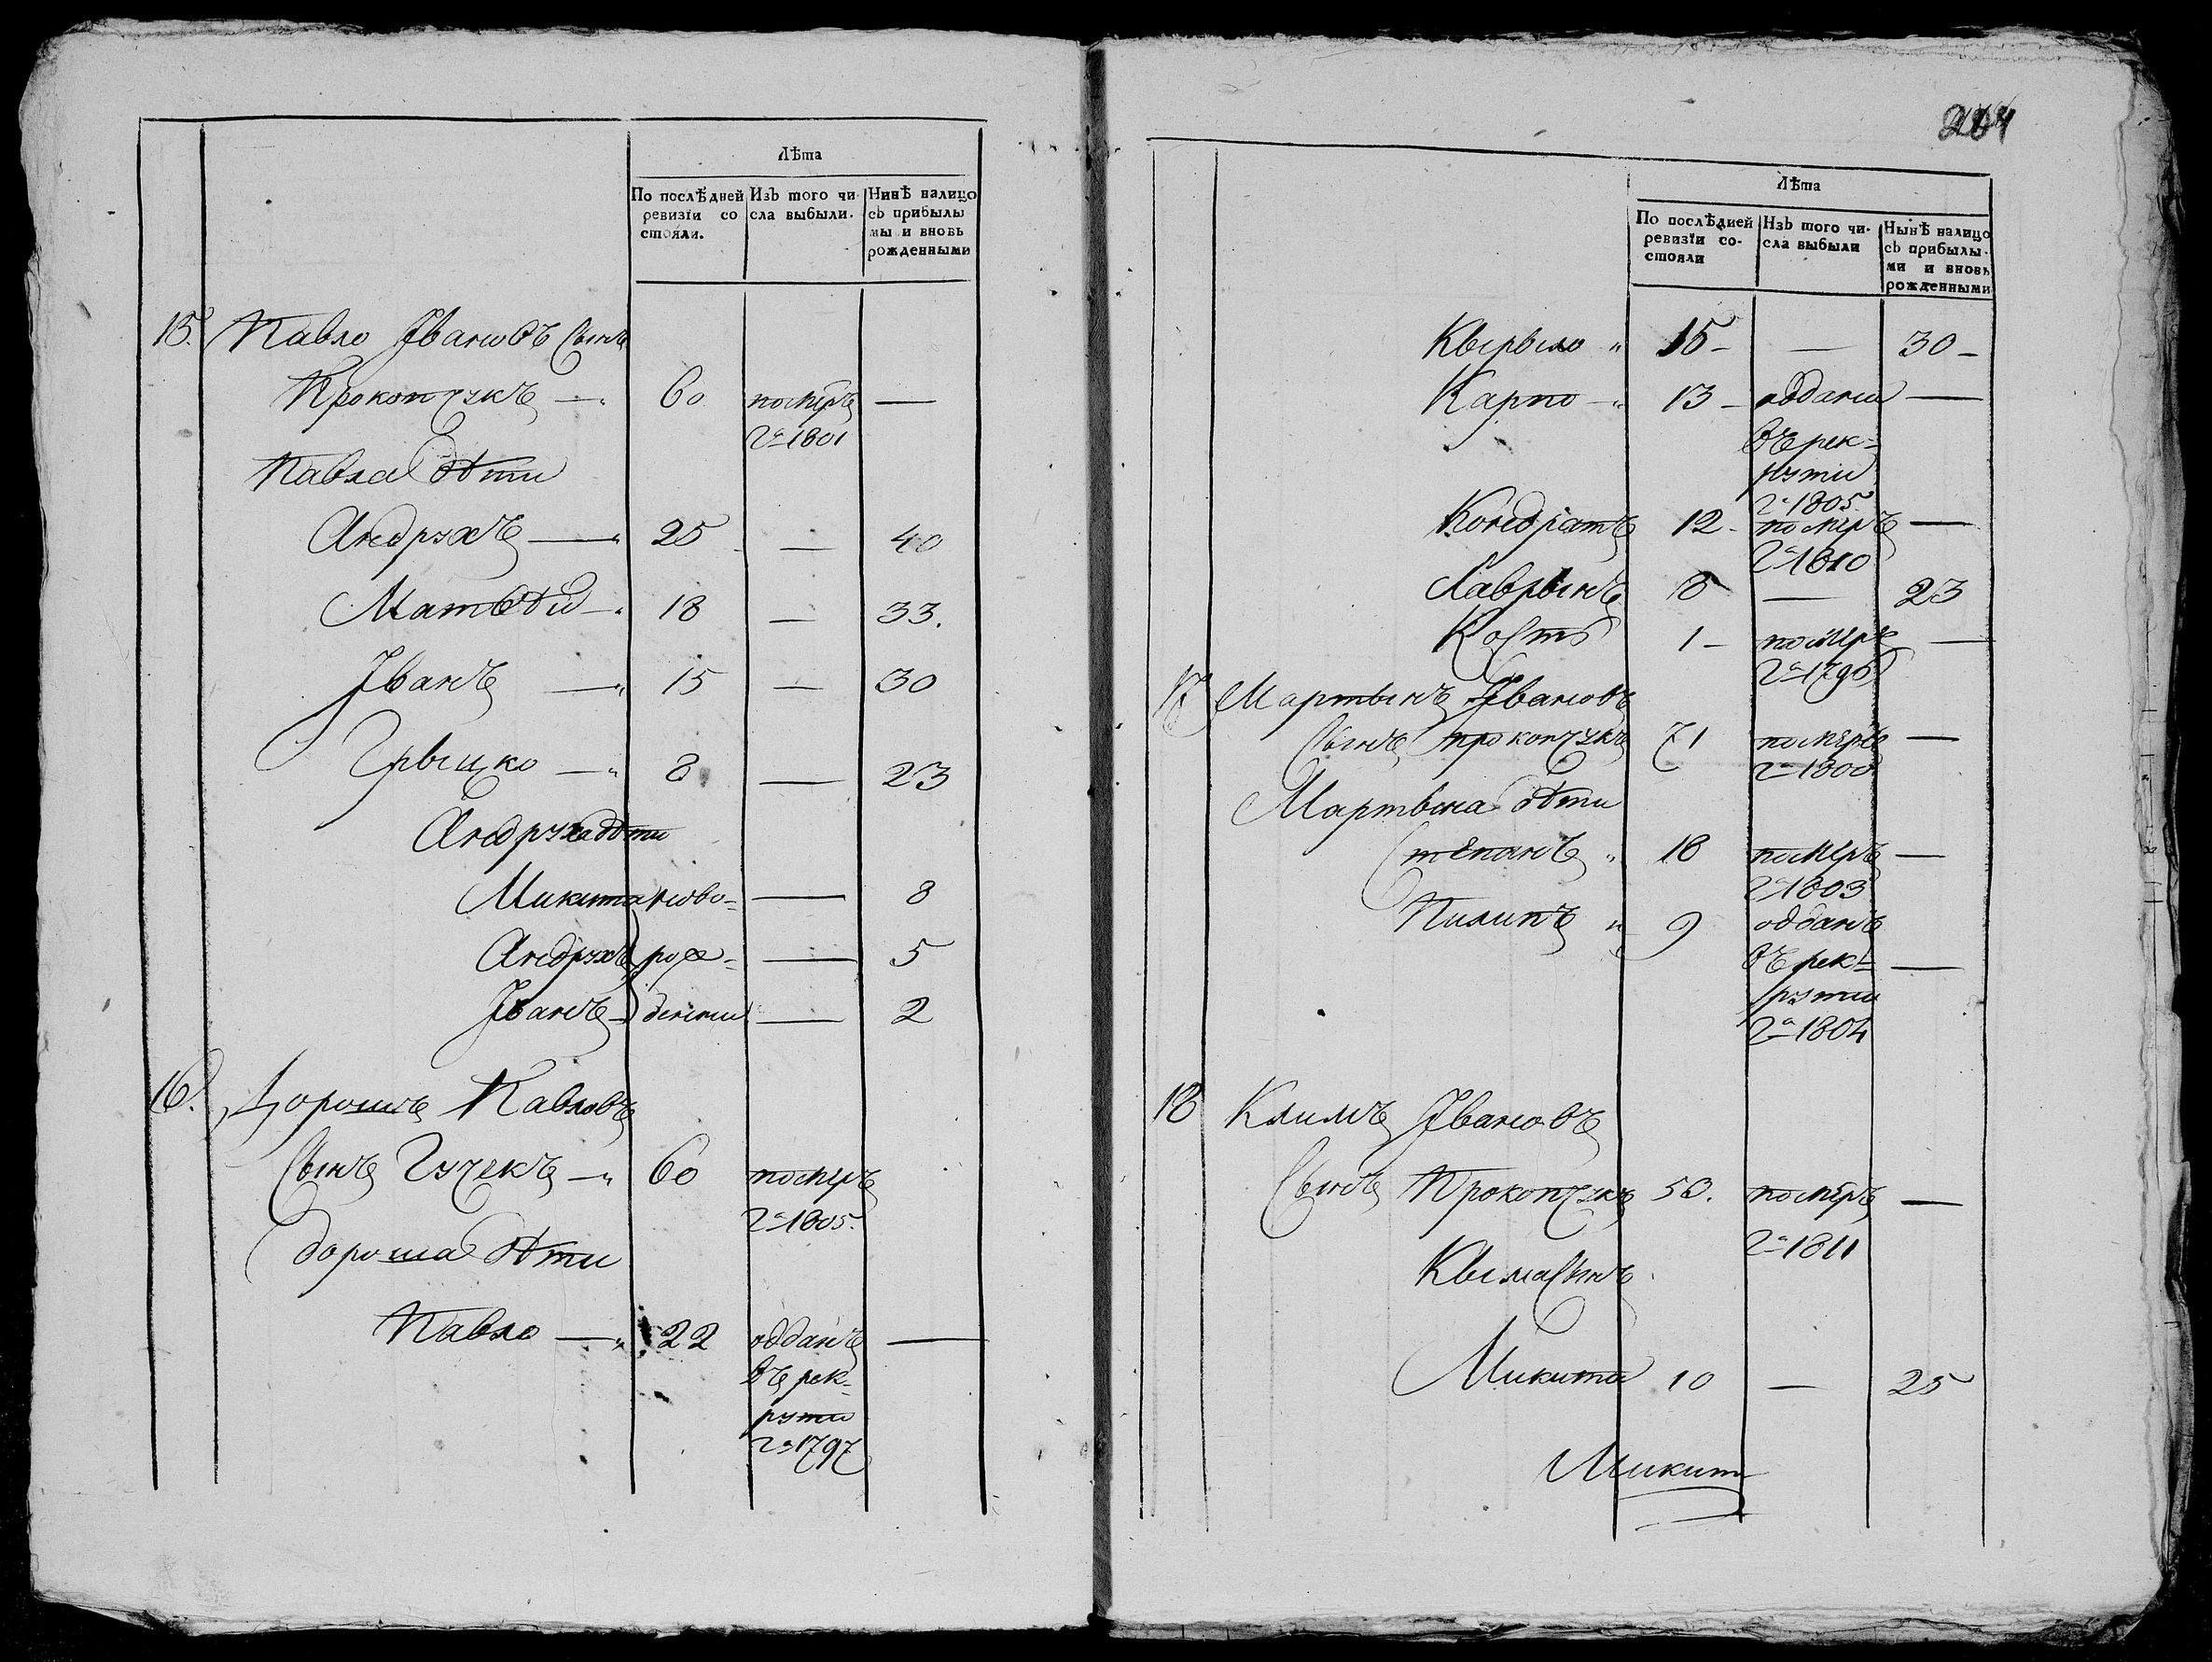 Лѣта
По послѣдней ревизіи состояли.
Изъ того числа выбыли.
Нинѣ налицо съ прибылымы и вновь рожденными
15. Павло Јвановъ Сынъ
Прокопчукъ — 60 померъ —
га 1801
Павла дѣти
Андрухъ — 25 — 40
Матвѣй — 18 — 33.
Јванъ — 15 — 30
Грыцко — 8 — 23
Андруха дѣти
Микита ново= — 8
Андрухъ рож= — 5
Јванъ — денни — 2
16. Дорошъ Павловъ
Сынъ Гучекъ — 60 померъ
га 1805.
дороша дѣти
Павло — 22 одданъ —
въ рек=
рути
га 1797
204
Лѣта
По послѣдней ревизіи состояли
Изъ того числа выбыли
Нынѣ налицо съ прибылыми и вновь рожденными
Кырыло 15 — — 30 —
Карпо — 13 — оддани —
въ рек=
рути
га 1805.
Кондратъ 12 — померъ —
га 1810
Лаврынъ 8 — 23
Кость 1 — померъ —
га 1796
17 Мартынъ Јвановъ
Сынъ прокопчукъ 71 померъ —
га 1800
Мартына дѣти
Степанъ 18 померъ —
га 1803
Пилипъ 9 одданъ
въ рек= —
рути
га 1804
18 Климъ Јвановъ
Сынъ Прокопчукъ 53. померъ —
га 1811
Клыма Сынъ
Микита 10 — 25
Микит